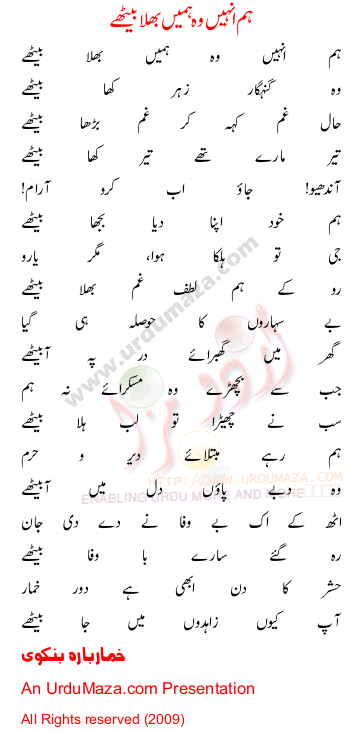 ہم انہیں وہ ہمیں بھلا بیٹھے
ہم انہیں وہ ہمیں بھلا بیٹھے
وہ گنہگار زہر کھا بیٹھے
حال غم کہہ کر غم بڑھا بیٹھے
تیر مارے تھے تیر کھا بیٹھے
آندھیو! جاؤ اب کرو آرام!
ہم خود اپنا دیا بجھا بیٹھے
جی تو ہلکا ہوا، مگر یارو
رو کے ہم لطف غم بھلا بیٹھے
بے سہاروں کا حوصلہ ہی گیا
گھر میں گھبرائے در پہ آبیٹھے
جب سے بچھڑے وہ مسکرائے نہ ہم
سب نے چھیڑا تو لب ہلا بیٹھے
ہم رہے مبتلائے دیر و حرم
وہ دبے پاؤں دل میں آبیٹھے
اٹھ کے اک بے وفا نے دے دی جان
رہ گئے سارے با وفا بیٹھے
حشر کا دن ابھی ہے دور خمار
آپ کیوں زاہدوں میں جا بیٹھے
خماربارہ بنکوی
An UrduMaza.com Presentation
All Rights reserved (2009)
www.urdumaza.com
اردو مزا
HTTP://WWW.URDUMAZA.COM
ENABLING URDU MORE AND MORE